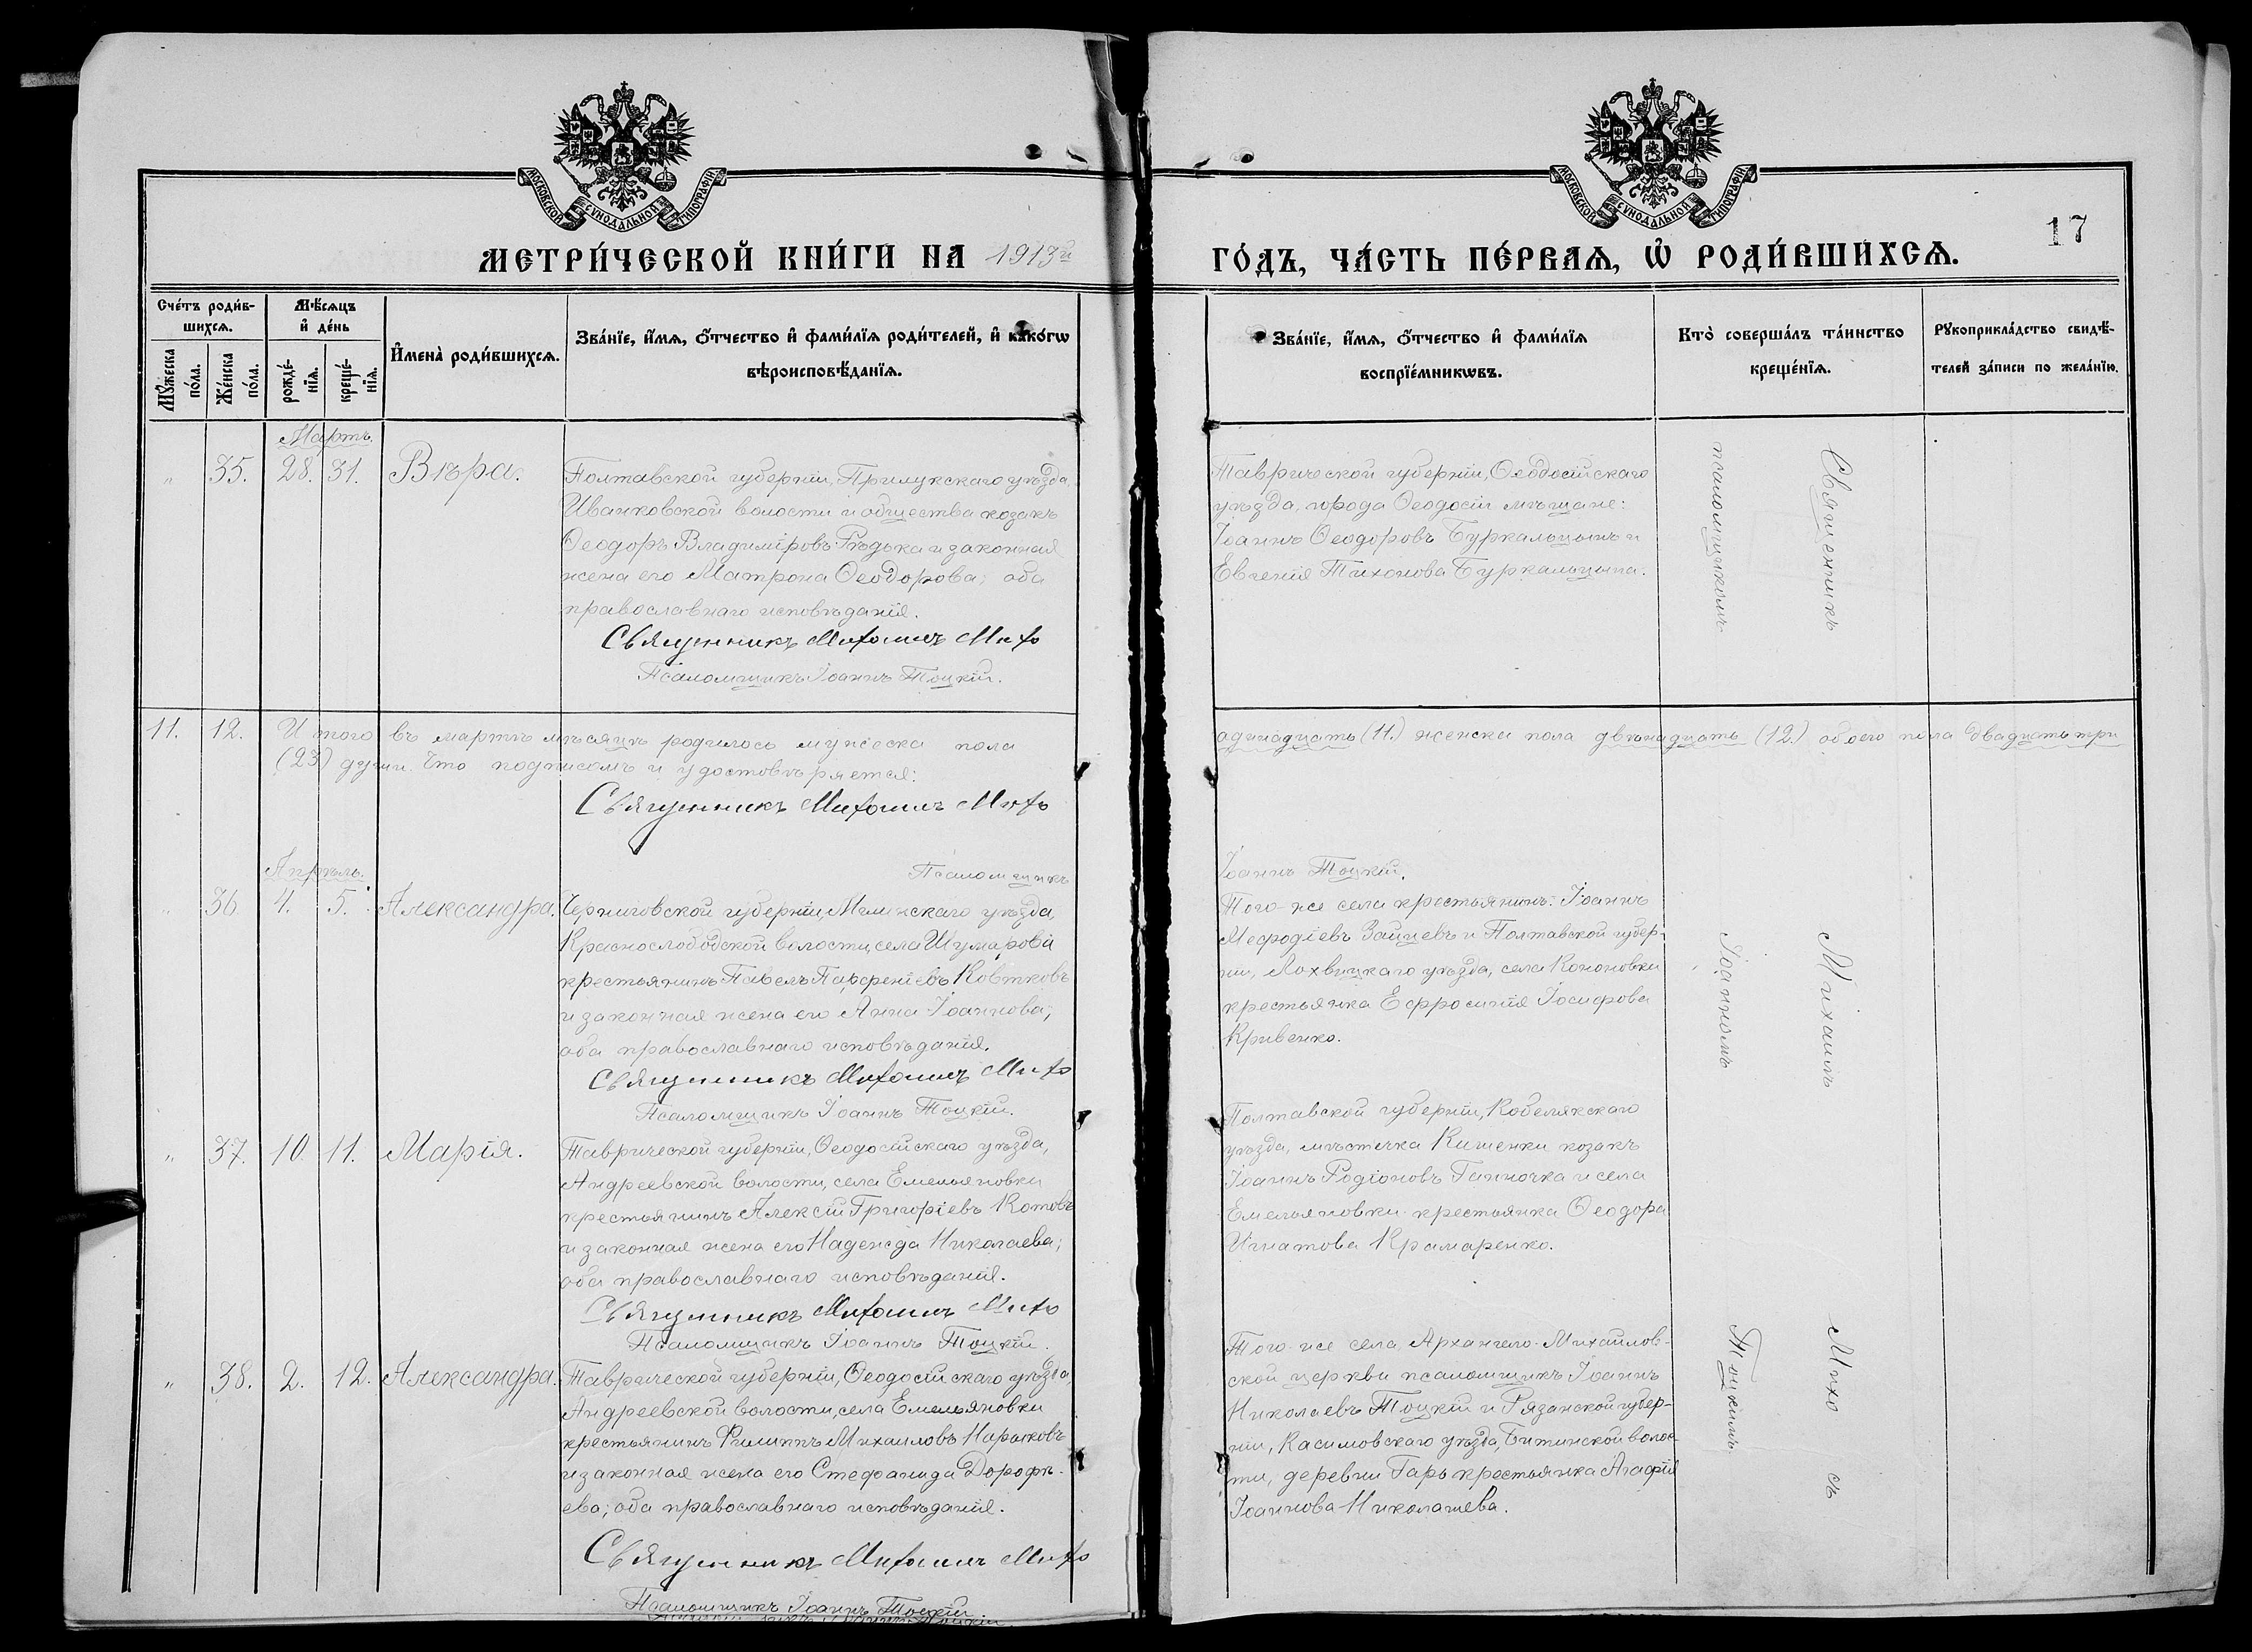 МОСКОВСКОЙ СѴНОДАЛЬНОЙ ТИПОГРАФІИ
МОСКОВСКОЙ СѴНОДАЛЬНОЙ ТИПОГРАФІИ
17
МЕТРИ́ЧЕСКОЙ КНИ́ГИ НА 1913й ГО́ДЪ, ЧА́СТЬ ПЕ́РВАѦ, Ѡ҆ РОДИ́ВШИХСѦ.
Сче́тъ роди́в-
шихсѧ.
Мꙋ́жеска
по́ла.
Же́нска
по́ла.
Мѣ́сѧцъ
и҆ де́нь
рожде́-
нїѧ.
креще́-
нїѧ.
И҆мена̀ роди́вшихсѧ.
Зва́нїе, и҆́мѧ, ѻ҆́тчество и҆ фами́лїѧ роди́телей, и҆ како́гѡ
вѣроисповѣ́данїѧ.
Зва́нїе, и҆́мѧ, ѻ҆́тчество и҆ фами́лїѧ
воспрїе́мникѡвъ.
Кто̀ соверша́лъ та́инство
креще́нїѧ.
Рꙋкоприкла́дство свидѣ́-
телей за́писи по жела́нїю.
Мартъ.
" 35. 28. 31. Вѣра.
Полтавской губерніи, Прилукскаго уѣзда,
Иванковской волости и общества козакъ
Ѳеодоръ Владиміровъ Рѣдька и законная
жена его Матрона Ѳеодорова; оба
православнаго исповѣданія.
Священникъ Михаилъ Михо
Псаломщикъ Іоаннъ Тоцкій.
Таврической губерніи, Ѳеодосійскаго
уѣзда, города Ѳеодосіи мѣщане:
Іоаннъ Ѳеодоровъ Буркальцынъ и
Евгенія Тихонова Буркальцына.
11. 12. Итого въ мартѣ мѣсяцѣ родилось мужеска пола одинадцать (11.) женска пола двѣнадцать (12.) обоего пола двадцать три
(23) души. Что подписомъ и удостовѣряется:
Священникъ Михаилъ Михо
Псаломщикъ Іоаннъ Тоцкій.
Апрѣль.
" 36 4. 5. Александра.
Черниговской губерніи, Мглинскаго уѣзда,
Краснослободской волости, села Шумарова
крестьянинъ Павелъ Парѳеніевъ Ковтковъ
и законная жена его Анна Іоаннова;
оба православнаго исповѣданія.
Священникъ Михаилъ Михо
Псаломщикъ Іоаннъ Тоцкій.
Того-же села крестьянинъ: Іоаннъ
Меѳодіевъ Зайцевъ и Полтавской губер-
ніи, Лохвицкаго уѣзда, села Кононовки
крестьянка Ефросинія Іосифова
Кривенко.
" 37. 10. 11. Марія.
Таврической губерніи, Ѳеодосійскаго уѣзда,
Андреевской волости, села Емельяновки
крестьянинъ Алексій Григоріевъ Котовъ
и законная жена его Надежда Николаева;
оба православнаго исповѣданія.
Священникъ Михаилъ Михо
Псаломщикъ Іоаннъ Тоцкій.
Полтавской губерніи, Кобелякскаго
уѣзда, мѣстечка Кишенки козакъ
Іоаннъ Родіоновъ Ганночка и села
Емельяновки крестьянка Ѳеодора
Игнатова Крамаренко.
" 38. 2. 12. Александра.
Таврической губерніи, Ѳеодосійскаго уѣзда,
Андреевской волости, села Емельяновки
крестьянинъ Филиппъ Михаиловъ
и законная жена его Стефанида Дорофѣ-
ева; оба православнаго исповѣданія.
Священникъ Михаилъ Михо
Псаломщикъ Іоаннъ Тоцкій
Того-же села Архангело-Михайлов-
ской церкви псаломщикъ Іоаннъ
Николаевъ Тоцкій и Рязанской губер-
ніи, Касимовскаго уѣзда, волос-
ти, деревни Гарь крестьянка Агафія
Іоаннова Николашева.
Священникъ Михаилъ Михо съ
псаломщикомъ Іоанномъ Тоцкимъ.